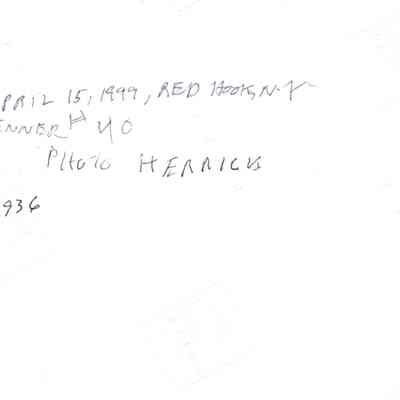 PRIL 15, 1999, RED HOOK, N.Y
ENNER # 40
PHOTO HERRICK
936